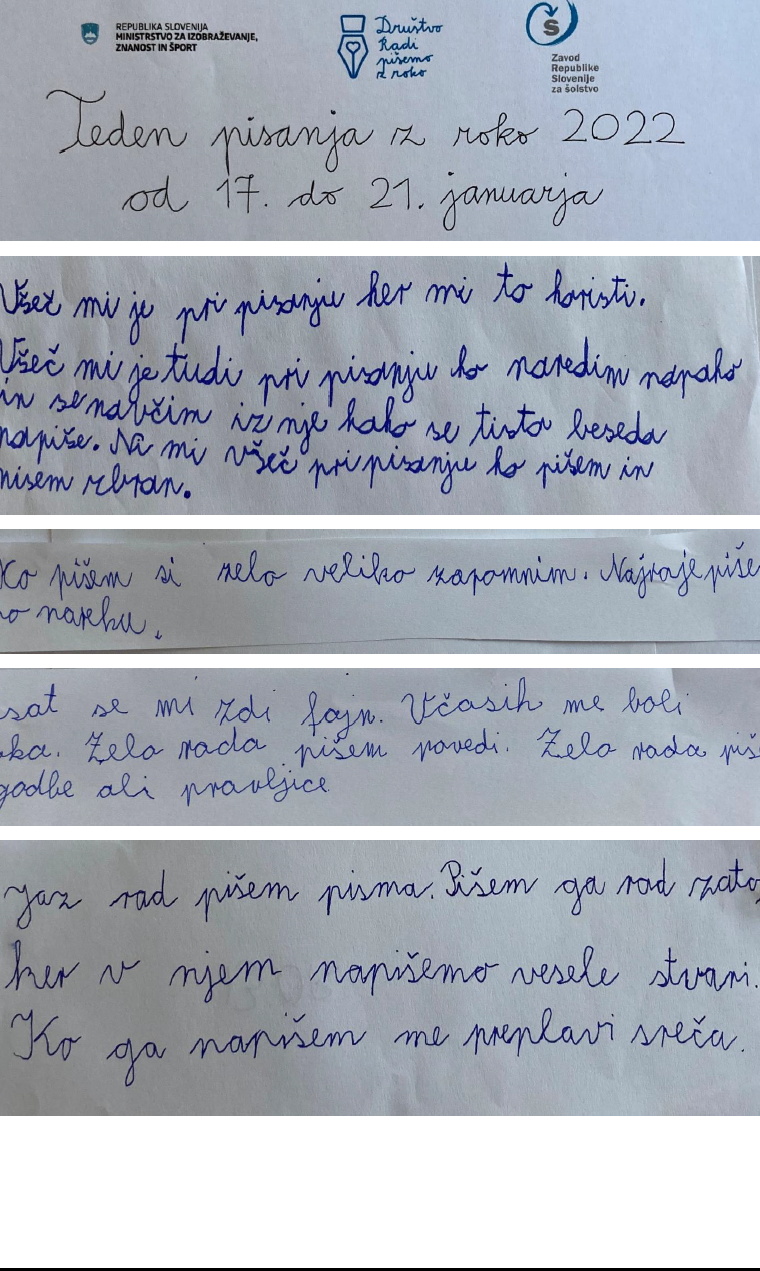 REPUBLIKA SLOVENIJA
MINISTRSTVO ZA IZOBRAŽEVANJE,
ZNANOST IN ŠPORT
Društvo
Radi
pišemo
z roko
Zavod
Republike
Slovenije
za šolstvo
Teden pisanja z roko 2022
od 17. do 21. januarja
Všeč mi je pri pisanju ker mi to koristi.
Všeč mi je tudi pri pisanju ko naredim napako
in se navčim iz nje kako se tista beseda
napiše. Ni mi všeč pri pisanju ko pišem in
nisem zbran.
Ko pišem si zelo veliko zapomnim. Najraje piše
po nareku.
sat se mi zdi fajn. Včasih me boli
oka. Zelo rada pišem povedi. Zelo rada piš
godbe ali pravljice
Jaz rad pišem pisma. Pišem ga rad zato,
ker v njem napišemo vesele stvari.
Ko ga napišem me preplavi sreča.